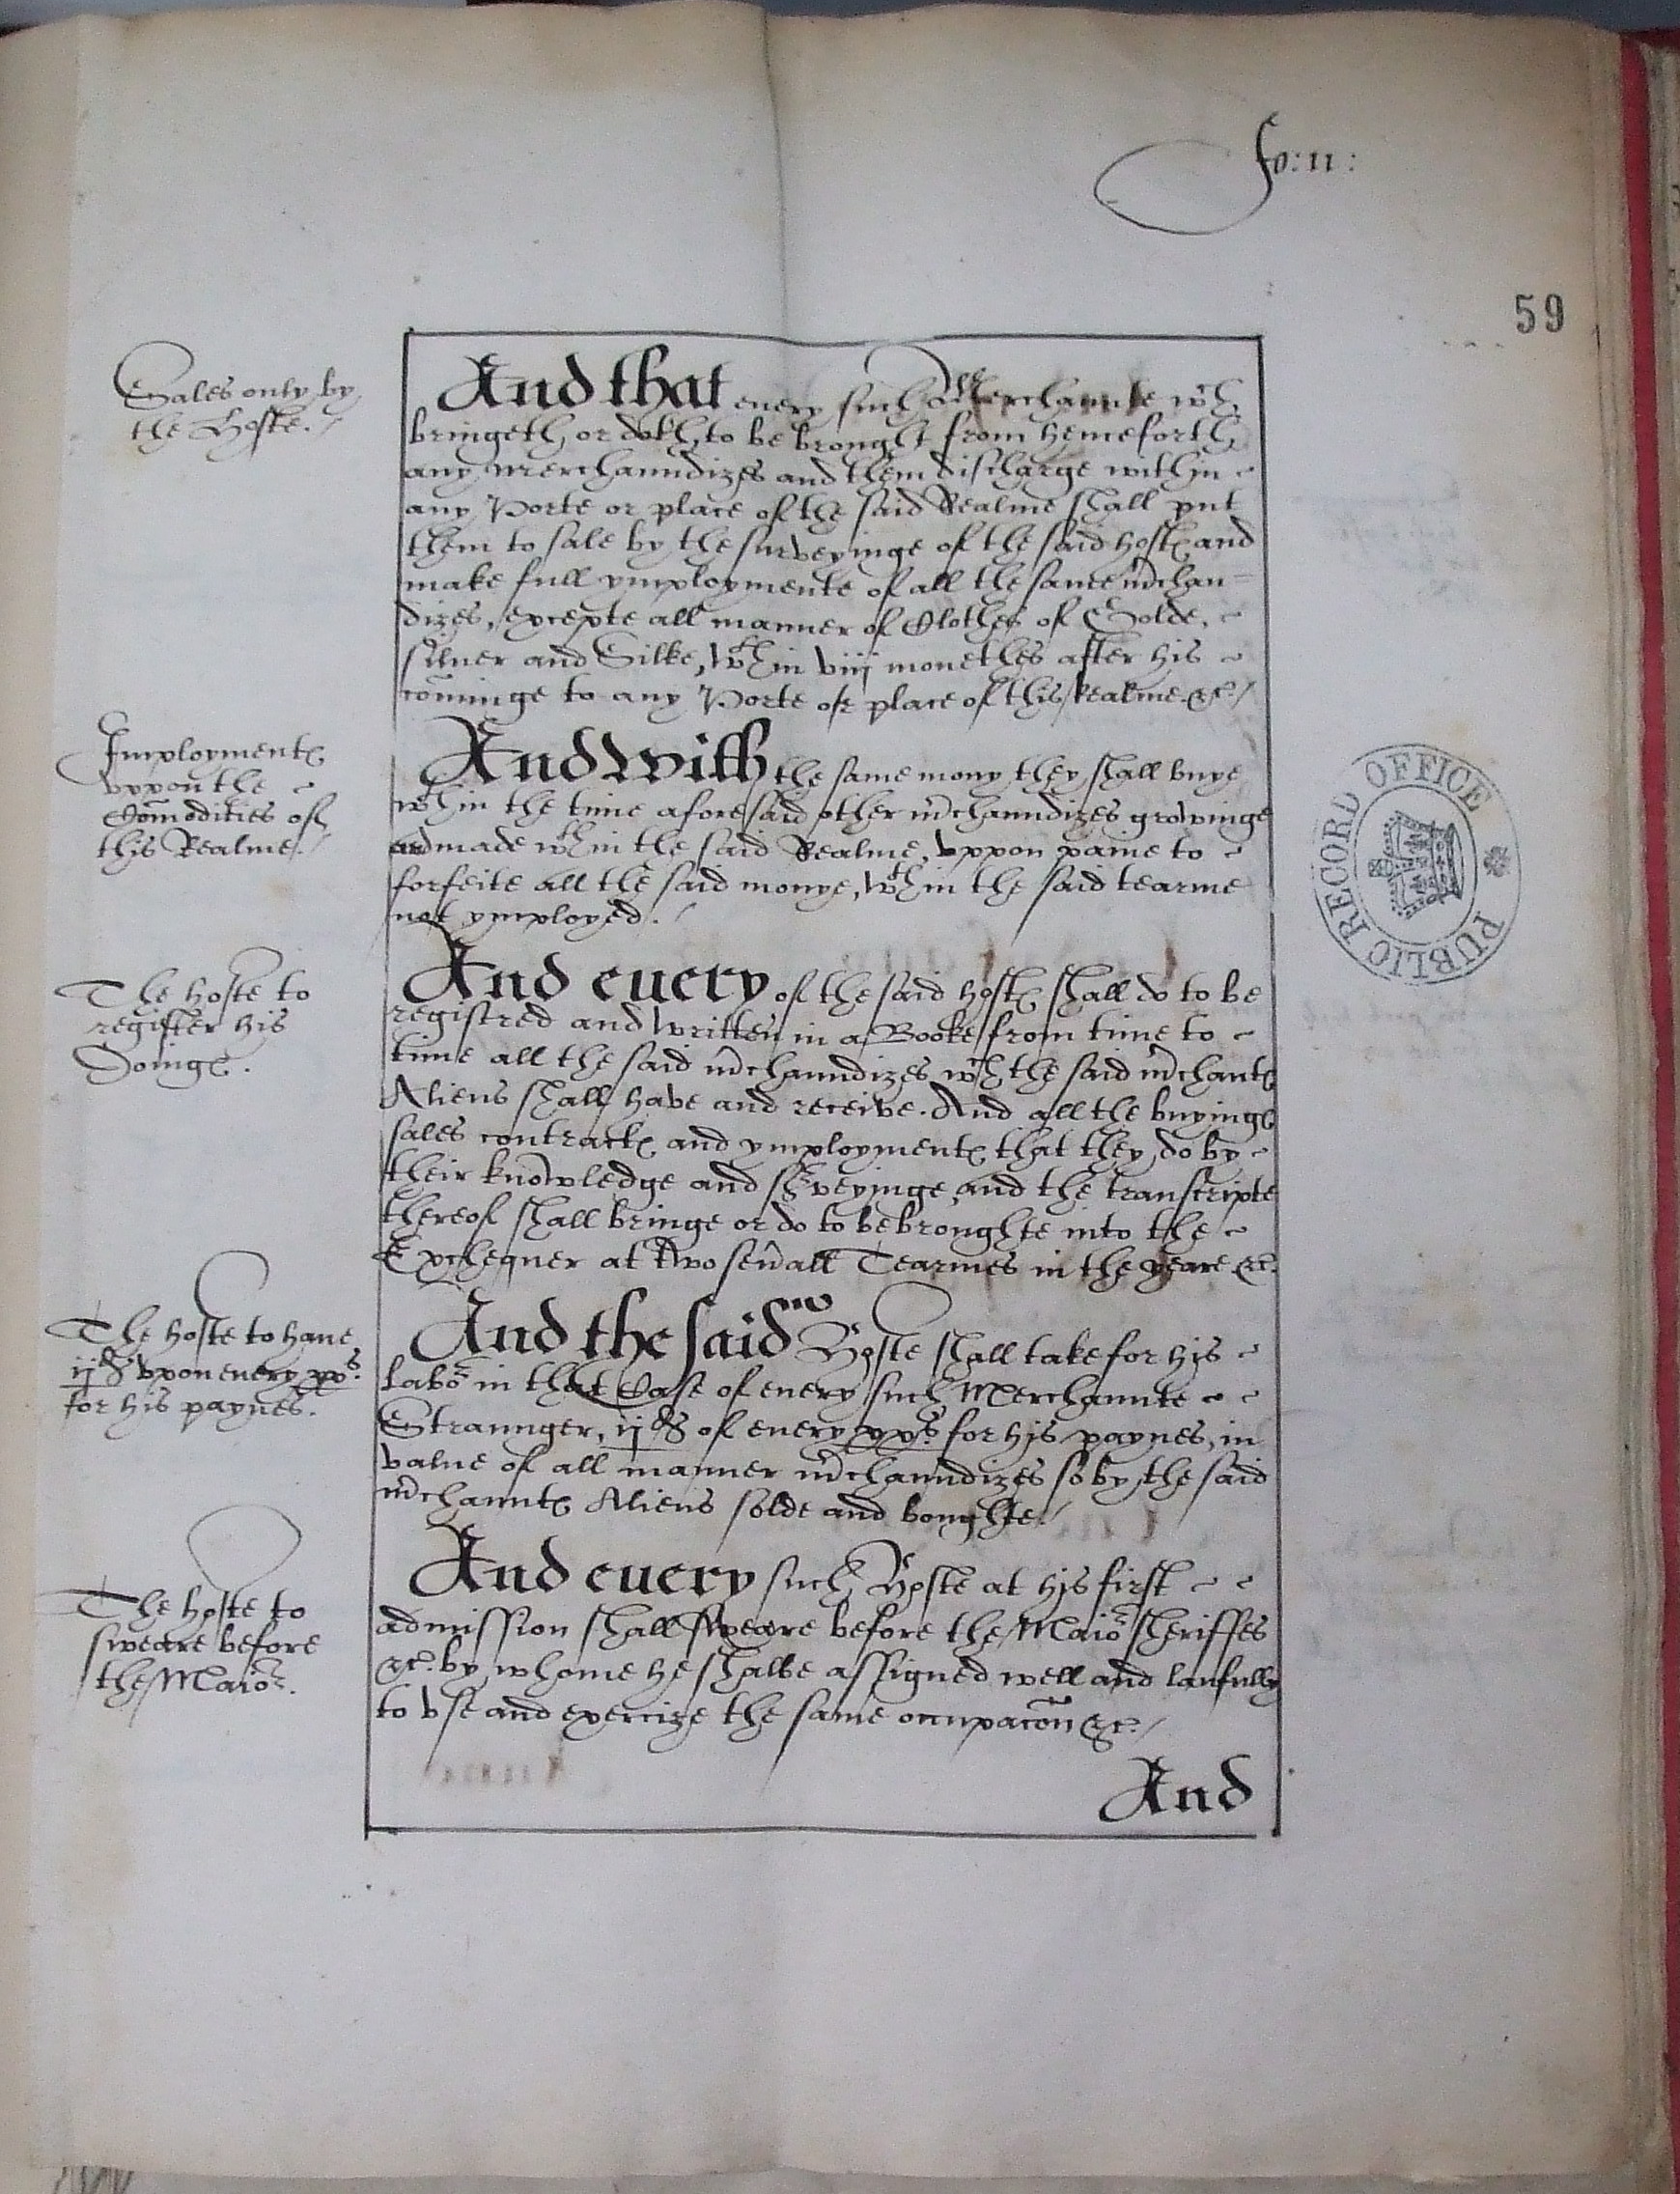 fo: 11 :
59
Sales only by
the Hoste./
And that euery such Merchaunte wch
bringeth or doth to be brought from henceforth
any merchaundizes and them discharge within
any Porte or place of the said Realme shall put
them to sale by the surveyinge of the said hostes and
make full ymploymente of all the same m̃chan-
dizes, excepte all manner of Clothes of Golde,
siluer and Silke, wthin viij monethes after his
cõminge to any Porte or place of this Realme. &c./
Imploymentes
vppon the
Com̃odities of
this Realme./
And with the same mony they shall buye
wthin the time aforesaid other m̃chaundizes growinge
and made wthin the said Realme, vppon paine to
forfeite all the said monye, wthin the said tearme
not ymployed./
The hoste to
register his
Doinges.
And euery of the said hostes shall do to be
registred and written in a Booke from time to
time all the said m̃chaundizes wch the said m̃chantes
Aliens shall have and receive. And all the buyinges
sales contractes and ymploymentes that they do by
their knowledge and surveyinge and the transcripte
thereof shall bringe or do to be broughte into the
Exchequer at two seũall Tearmes in the yeare &c.
The hoste to haue
ij d vpon euery xxs.
for his paynes.
And the said Hoste shall take for his
labor in that Case of euery such Merchaunte
Straunger, ij d of euery xxs. for his paynes, in
value of all manner m̃chaundizes so by the said
m̃chauntes Aliens solde and boughte./
The hoste to
sweare before
the Maior.
And euery such Hoste at his first
admission shall sweare before the Maior sheriffes
&c. by whome he shalbe assigned well and laufully
to vse and exercize the same occupacõn &c./
And
PUBLIC RECORD OFFICE